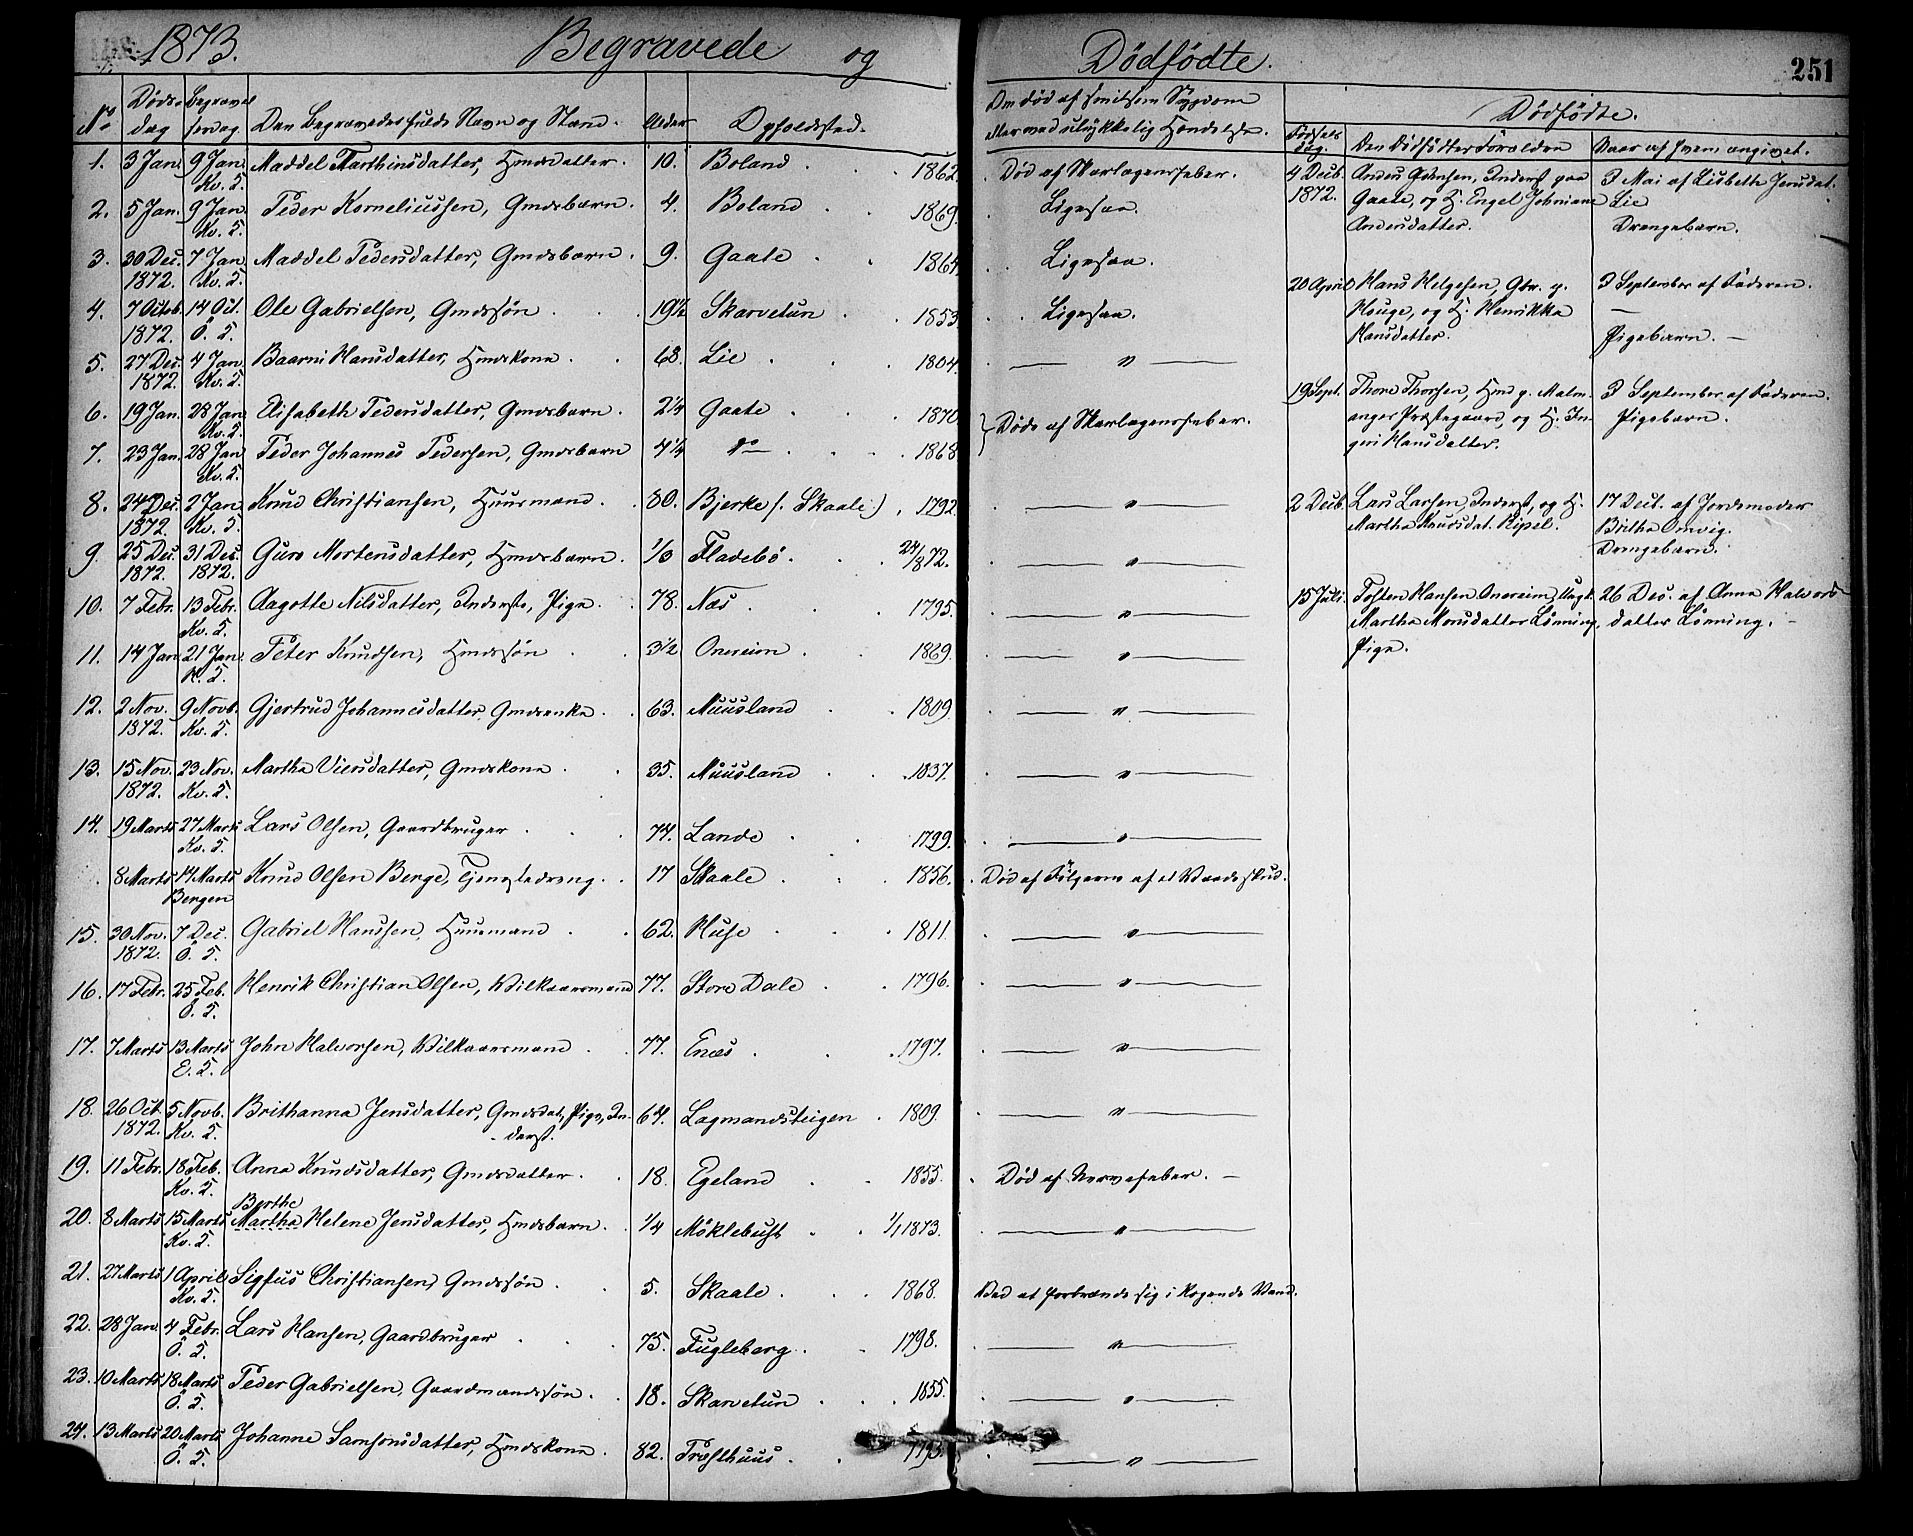 1873. Begravede og Dødfødte. 251
No Døds-dag Begravelsesdag Den Begravedes fulde Navn og Stand. Alder Opholdssted. Om død af smitsom Sygdom eller ved ulykkelig Hændelse. Dødfødte.
Fødsels Dag. Den Dødfødtes Forældre Naar af hvem angivet.
1. 3 Jan. 9 Jan. Kv. 5. Maddel Marthinsdatter, Hmdsdatter. 10. Boland 1862. Død af Skarlagensfeber.
2. 5 Jan. 9 Jan. Kv. 5. Peder Korneliussen, Gmdsbarn. 4. Boland 1869. Ligesaa.
3. 30 Dec. 1872. 7 Jan. Kv. 5. Maddel Pedersdatter, Gmdsbarn. 9. Gaate 1864. Ligesaa.
4. 7 Octob. 1872. 14 Oct. Ö. 5. Ole Gabrielsen, Gmdssøn 19½ Skarvetun 1853. Ligesaa.
5. 27 Dec. 1872. 4 Jan. Kv. 5. Baarni Hansdatter, Hmdskone 68. Lie 1804. — " —
6. 19 Jan. 28 Jan. Kv. 5. Elisabeth Pedersdatter, Gmdsbarn. 2¼ Gaate 1870. } Døde af Skarlagensfeber.
7. 23 Jan. 28 Jan. Kv. 5. Peder Johannes Pedersen, Gmdsbarn 4¼ do 1868
8. 24 Dec. 1872. 2 Jan. Kv. 5. Knud Christiansen, Huusmand. 80. Bjerke (: Skaale:) 1792. — " —
9. 25 Dec. 1872. 31 Dec. 1872. Guro Mortensdatter, Hmdsbarn 1/0 Fladebö. 24/8 72. — " —
10. 7 Febr. 13 Febr. Kv. 5. Aagotte Nilsdatter, Inderste, Pige. 78. Næs 1795. — " —
11. 14 Jan. 21 Jan. K. 5. Peter Knudsen, Hmdssøn 3½ Onereim 1869. — " —
12. 2 Nov. 1872. 9 Novb. Kv. 5. Gjertrud Johannesdatter, Gmdsenke. 63. Muusland 1809. — " —
13. 15 Nov. 1872. 23 Nov. Kv. 5. Martha Viersdatter, Gmdskone 35. Muusland 1837. — " —
14. 19 Marts 27 Marts Kv. 5. Lars Olsen, Gaardbruger 74. Lande 1799. — " —
8 Marts 14 Marts Bergen Knud Olsen Berge, Tjenestedreng. 17 Skaale 1856. Død af Følgerne af et Vaadeskud.
15. 30 Nov. 1872. 7 Dec. Ö. 5. Gabriel Hanssen, Huusmand 62. Huse 1811. — " —
16. 17 Febr. 25 Feb. Ö. 5. Henrik Christian Olsen, Vilkaarsmand 77. Store Dale 1796. — " —
17. 7 Marts 13 Marts E. 5. John Halvorsen, Vilkaarsmand 77. Enæs 1797. — " —
18. 26 Oct. 1872. 5 Novb. Kv. 5. Brithanna Jensdatter, Gmdsdat, Pige, Inderst. 64. Lagmandsteigen 1809. — " —
19. 11 Febr. 18 Feb. Kv. 5. Anna Knudsdatter, Gmdsdatter. 18. Egeland 1855. Død af Nervefeber. —
20. 8 Marts 15 Marts Kv. 5. Berthe Martha Helene Jensdatter, Hmdsbarn. ¼ Möklebust 1/1 1873. — " —
21. 27 Marts 1 April Kv. 5. Sigfus Christiansen, Gmdssøn 5. Skaale 1868. Ved at forbrænde sig i kogende Vand.
22. 28 Jan. 4 Febr. Ö. 5. Lars Hansen, Gaardbruger 75. Fugleberg 1798. — " —
23. 10 Marts 18 Marts Ö. 5. Peder Gabrielsen, Gaardmandssøn. 18. Skarvetun 1855. — " —
24. 13 Marts 20 Marts Ö. 5. Johanne Samsonsdatter, Hmdskone. 82. Træsthuus 1793. — " —
4 Decb. 1872. Anders Johnsen, Inderst paa Gaate, og H. Engel Johnianne Andersdatter. 3 Mai af Lisbeth Jensdat. Lie Drengebarn.
20 April Hans Helgesen, Gbr. p. Houge, og H. Henrikka Hansdatter. 3 September af Faderen. — Pigebarn. —
19 Sept. Thore Thorsen, Hmd p. Malmanger Præstegaard, og H. Ingeri Hansdatter. 3 September af Faderen. Pigebarn.
2 Decb. Lars Larsen, Inderst, og H. Martha Knudsdat. Ripel. 17 Decb. af Jordemoder Britha Omvig. Drengebarn.
15 Juli. Tosten Hansen Onereim, Ungk. Martha Monsdatter Løning, Pige. 26 Dec. af Anna Halvorsdatter Løning. —